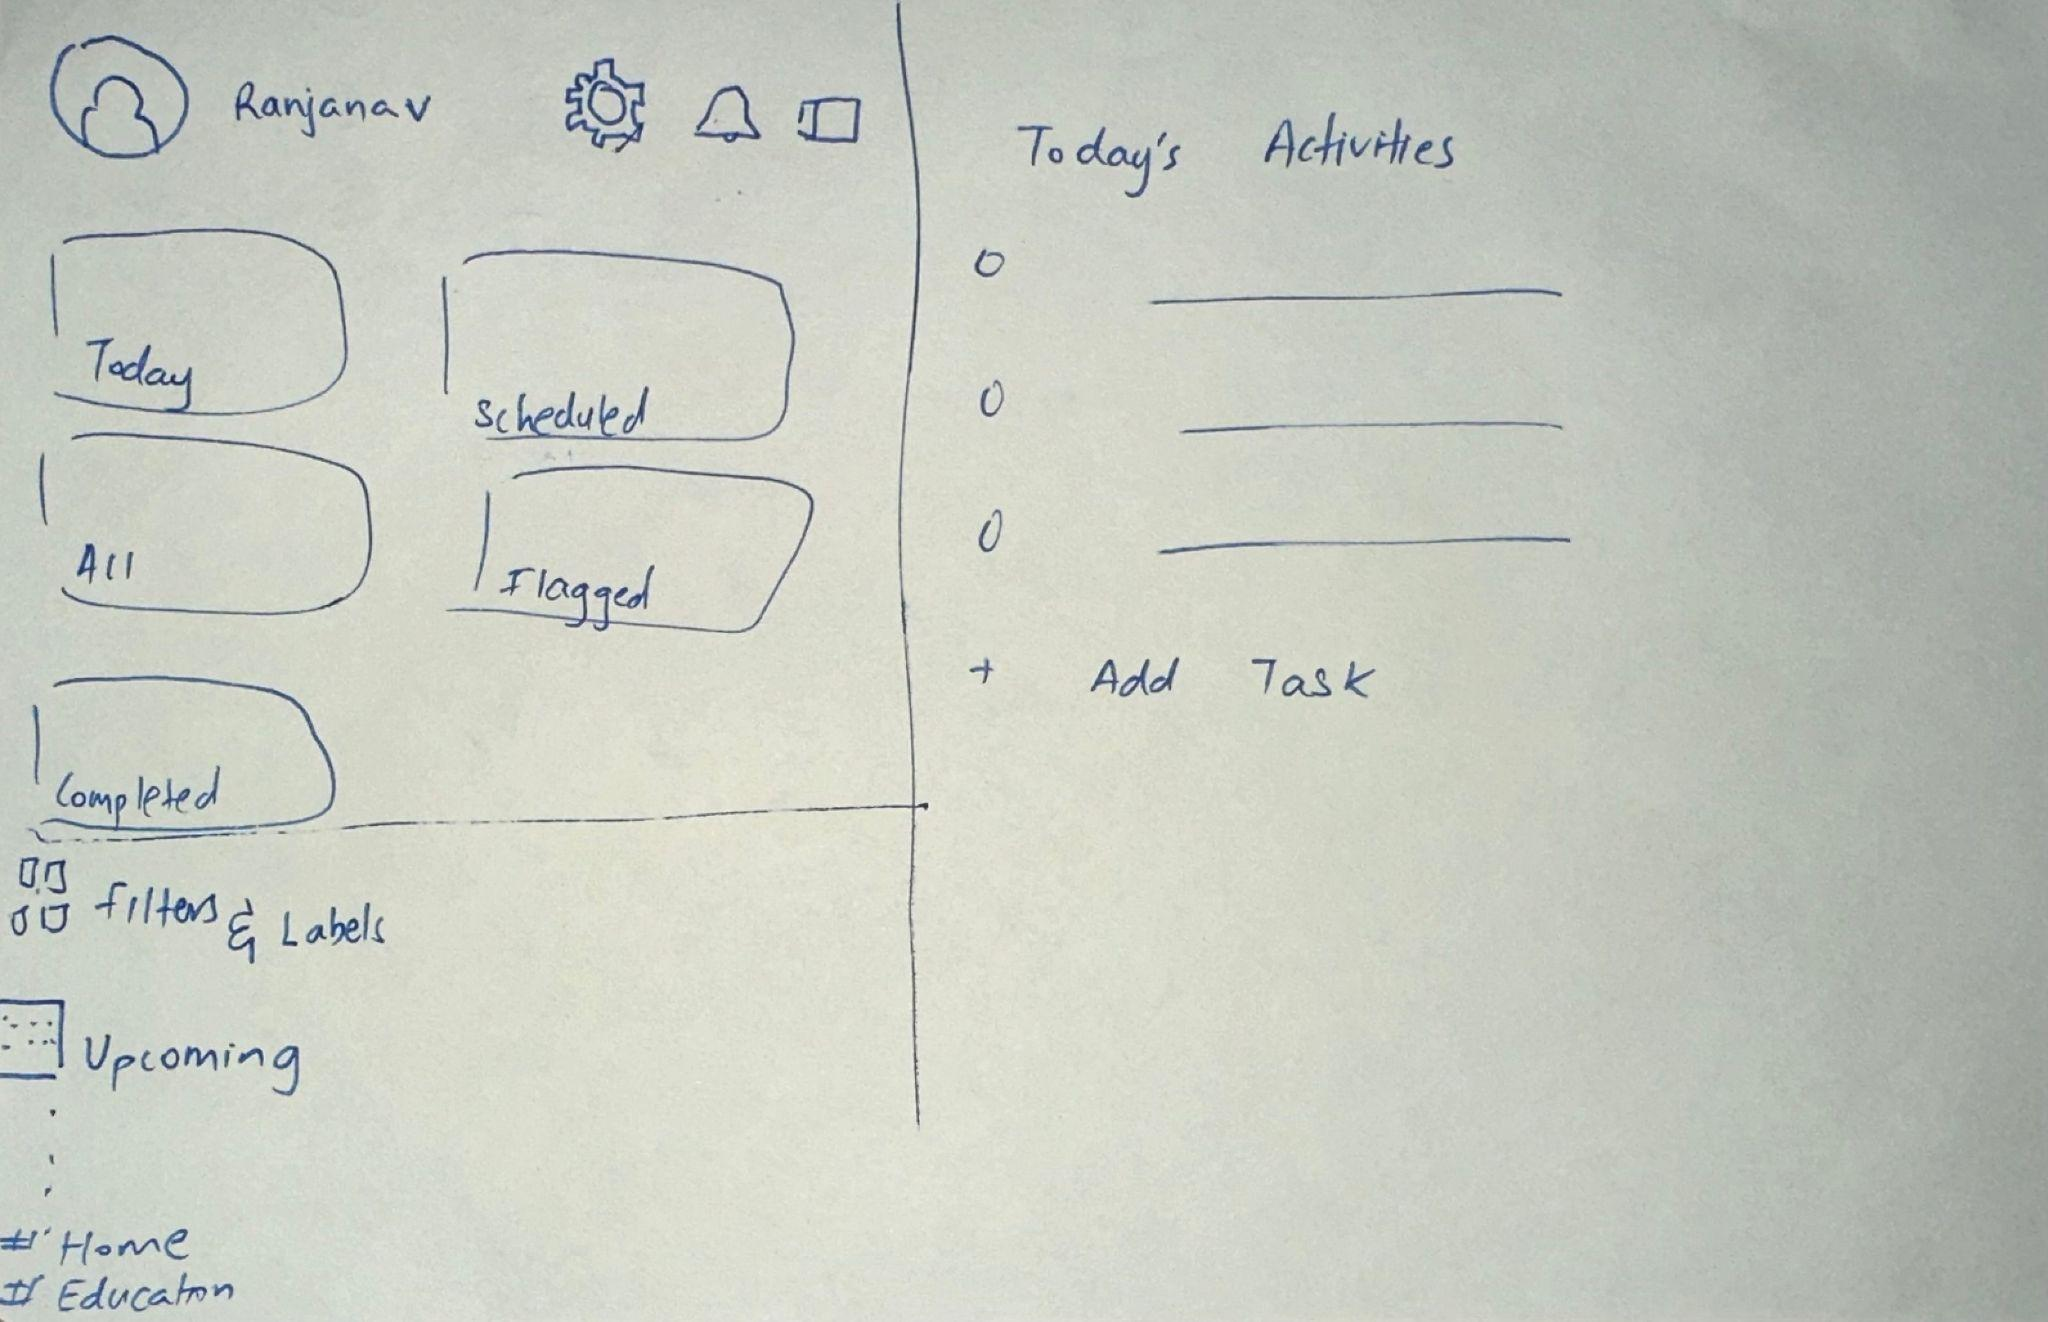 Ranjana v
Today
Scheduled
All
Flagged
Completed
Filters & Labels
Upcoming
# Home
# Education
Today's Activities
+ Add Task